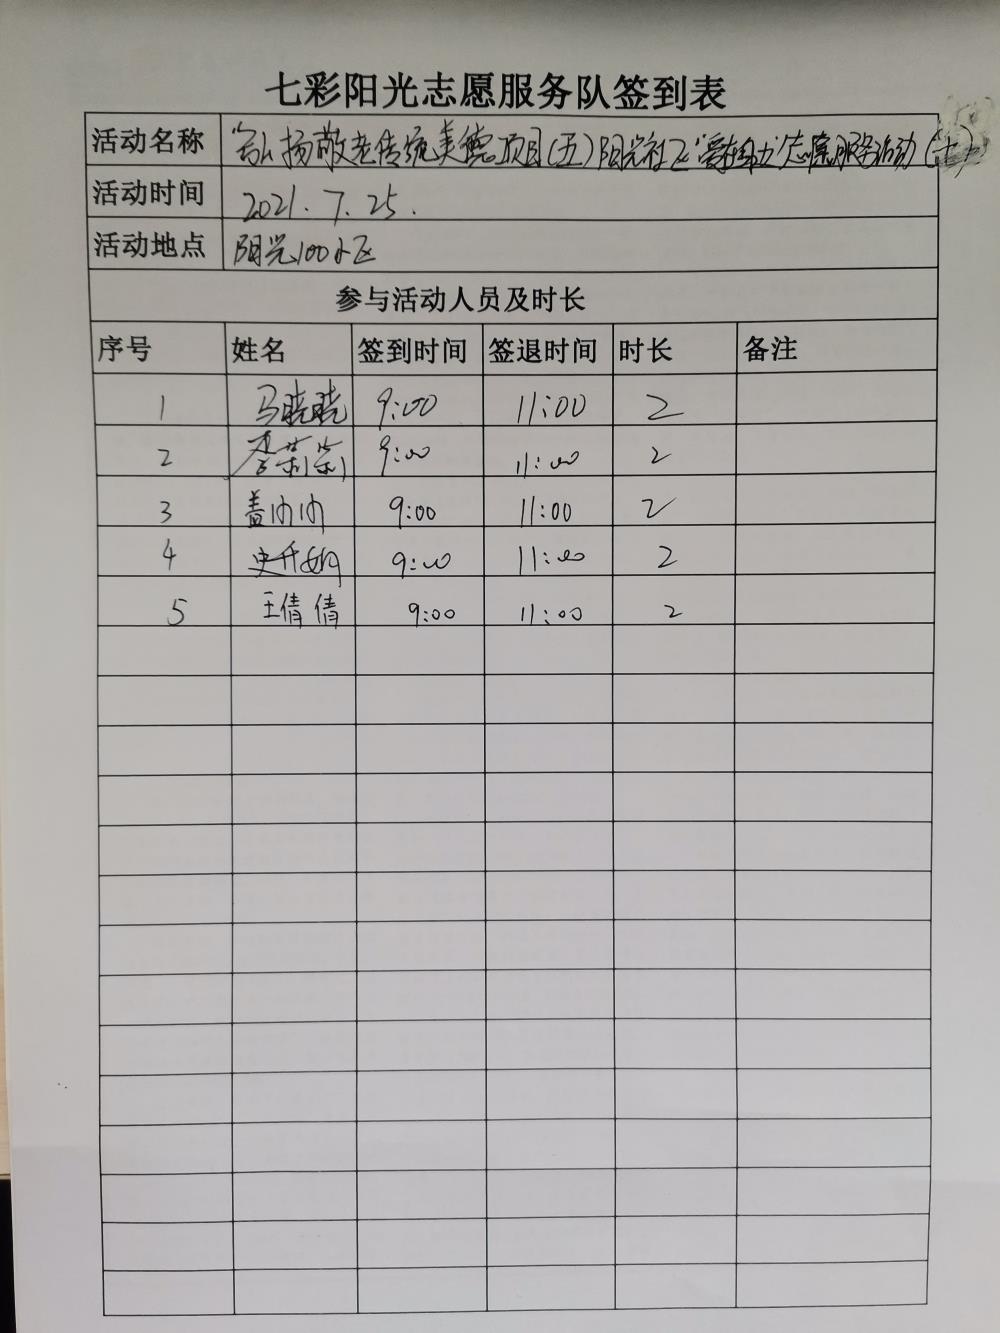 七彩阳光志愿服务队签到表
活动名称 弘扬敬老传统美德项目(五)阳光社区"爱在身边"志愿服务活动
活动时间 2021.7.25.
活动地点 阳光100小区
参与活动人员及时长
序号 姓名 签到时间 签退时间 时长 备注
1 马晓晓 9:00 11:00 2
2 李莉莉 9:00 11:00 2
3 盖帅帅 9:00 11:00 2
4 史丹娜 9:00 11:00 2
5 王倩倩 9:00 11:00 2